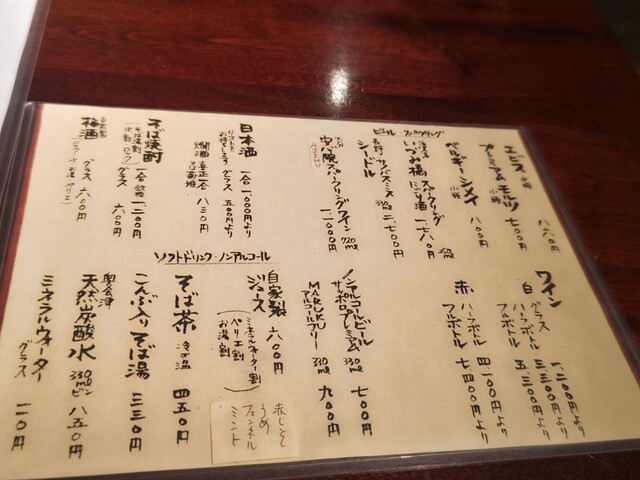 ビール・スパークリング
エビス 小瓶 八六〇円
プレミアムモルツ 小瓶 七〇〇円
ベルギーシメイ 小瓶 八〇〇円
いづみ橋 スパークリング にごり酒 250ml 一、七八〇円
シードル 330ml 二、七〇〇円
安心院スパークリングワイン 720ml
AJIMU
日本酒
リストを
お持ちします
一合 一、〇〇〇円より
グラス 五〇〇円より
燗酒 喜正 一合 八三〇円
そば焼酎
(そば湯割
水割 ロック)
一合 徳利 一、二〇〇円
グラス 六〇〇円
自家製
梅酒
グラス 六〇〇円
ワイン
白 グラス 一、二〇〇円より
ハーフボトル 三、三〇〇円より
フルボトル 五、五〇〇円より
赤 ハーフボトル 四、一〇〇円より
フルボトル 七、四〇〇円より
ソフトドリンク・ノンアルコール
ノンアルコールビール
サッポロプレミアム 330ml 七〇〇円
MARUKU
アルコールフリー 330ml 九〇〇円
自家製
ジュース 六〇〇円
(ミネラルウォーター割
ペリエ割
お湯割)
赤しそ
うめ
フェンネル
ミント
そば茶 冷・温 四五〇円
こんぶ入りそば湯 三三〇円
奥会津
天然炭酸水 330mlビン 八五〇円
ミネラルウォーター
グラス 一一〇円